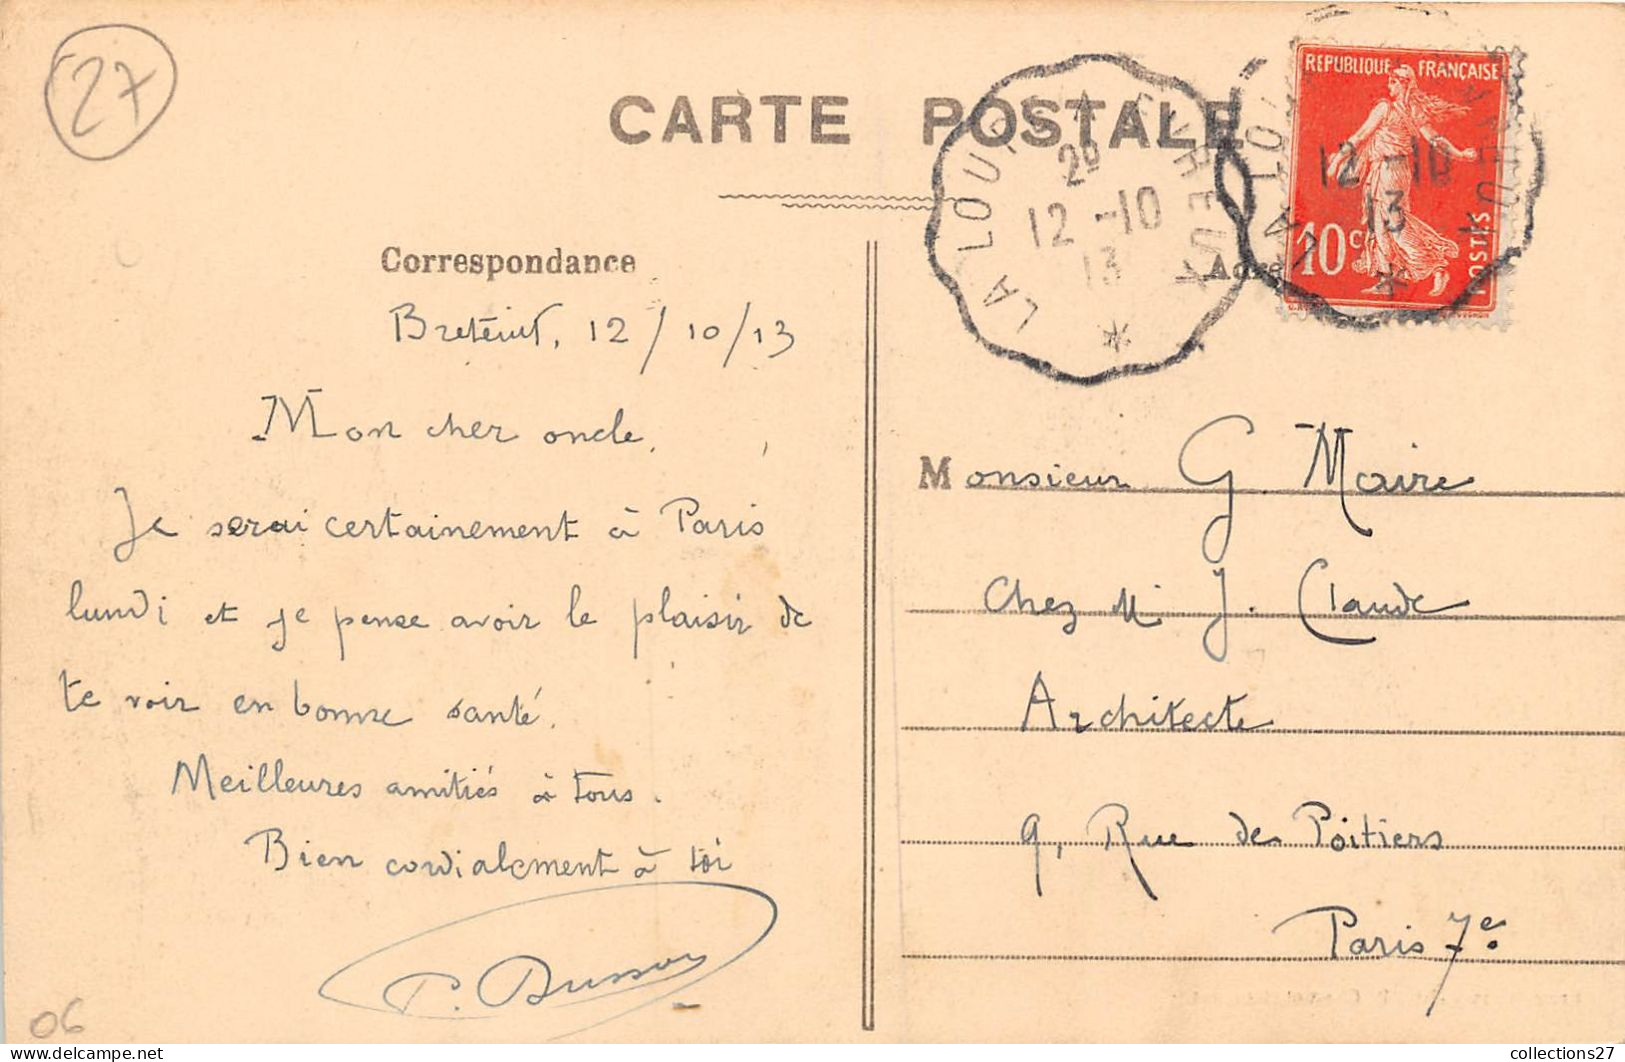 27
CARTE POSTALE
RÉPUBLIQUE FRANÇAISE
10c
POSTES
LA LOUPE A EVREUX
2°
12 -10
13
LA LO
12 -10
13
Correspondance
12/10/13
Mon cher oncle,
Je serai certainement à Paris
lundi et je pense avoir le plaisir de
te voir en bonne santé.
Meilleures amitiés à tous.
Bien cordialement à toi
Monsieur G. Maire
Chez M. J. Claude
Architecte
9, Rue de Poitiers
Paris 7e
06
collections27